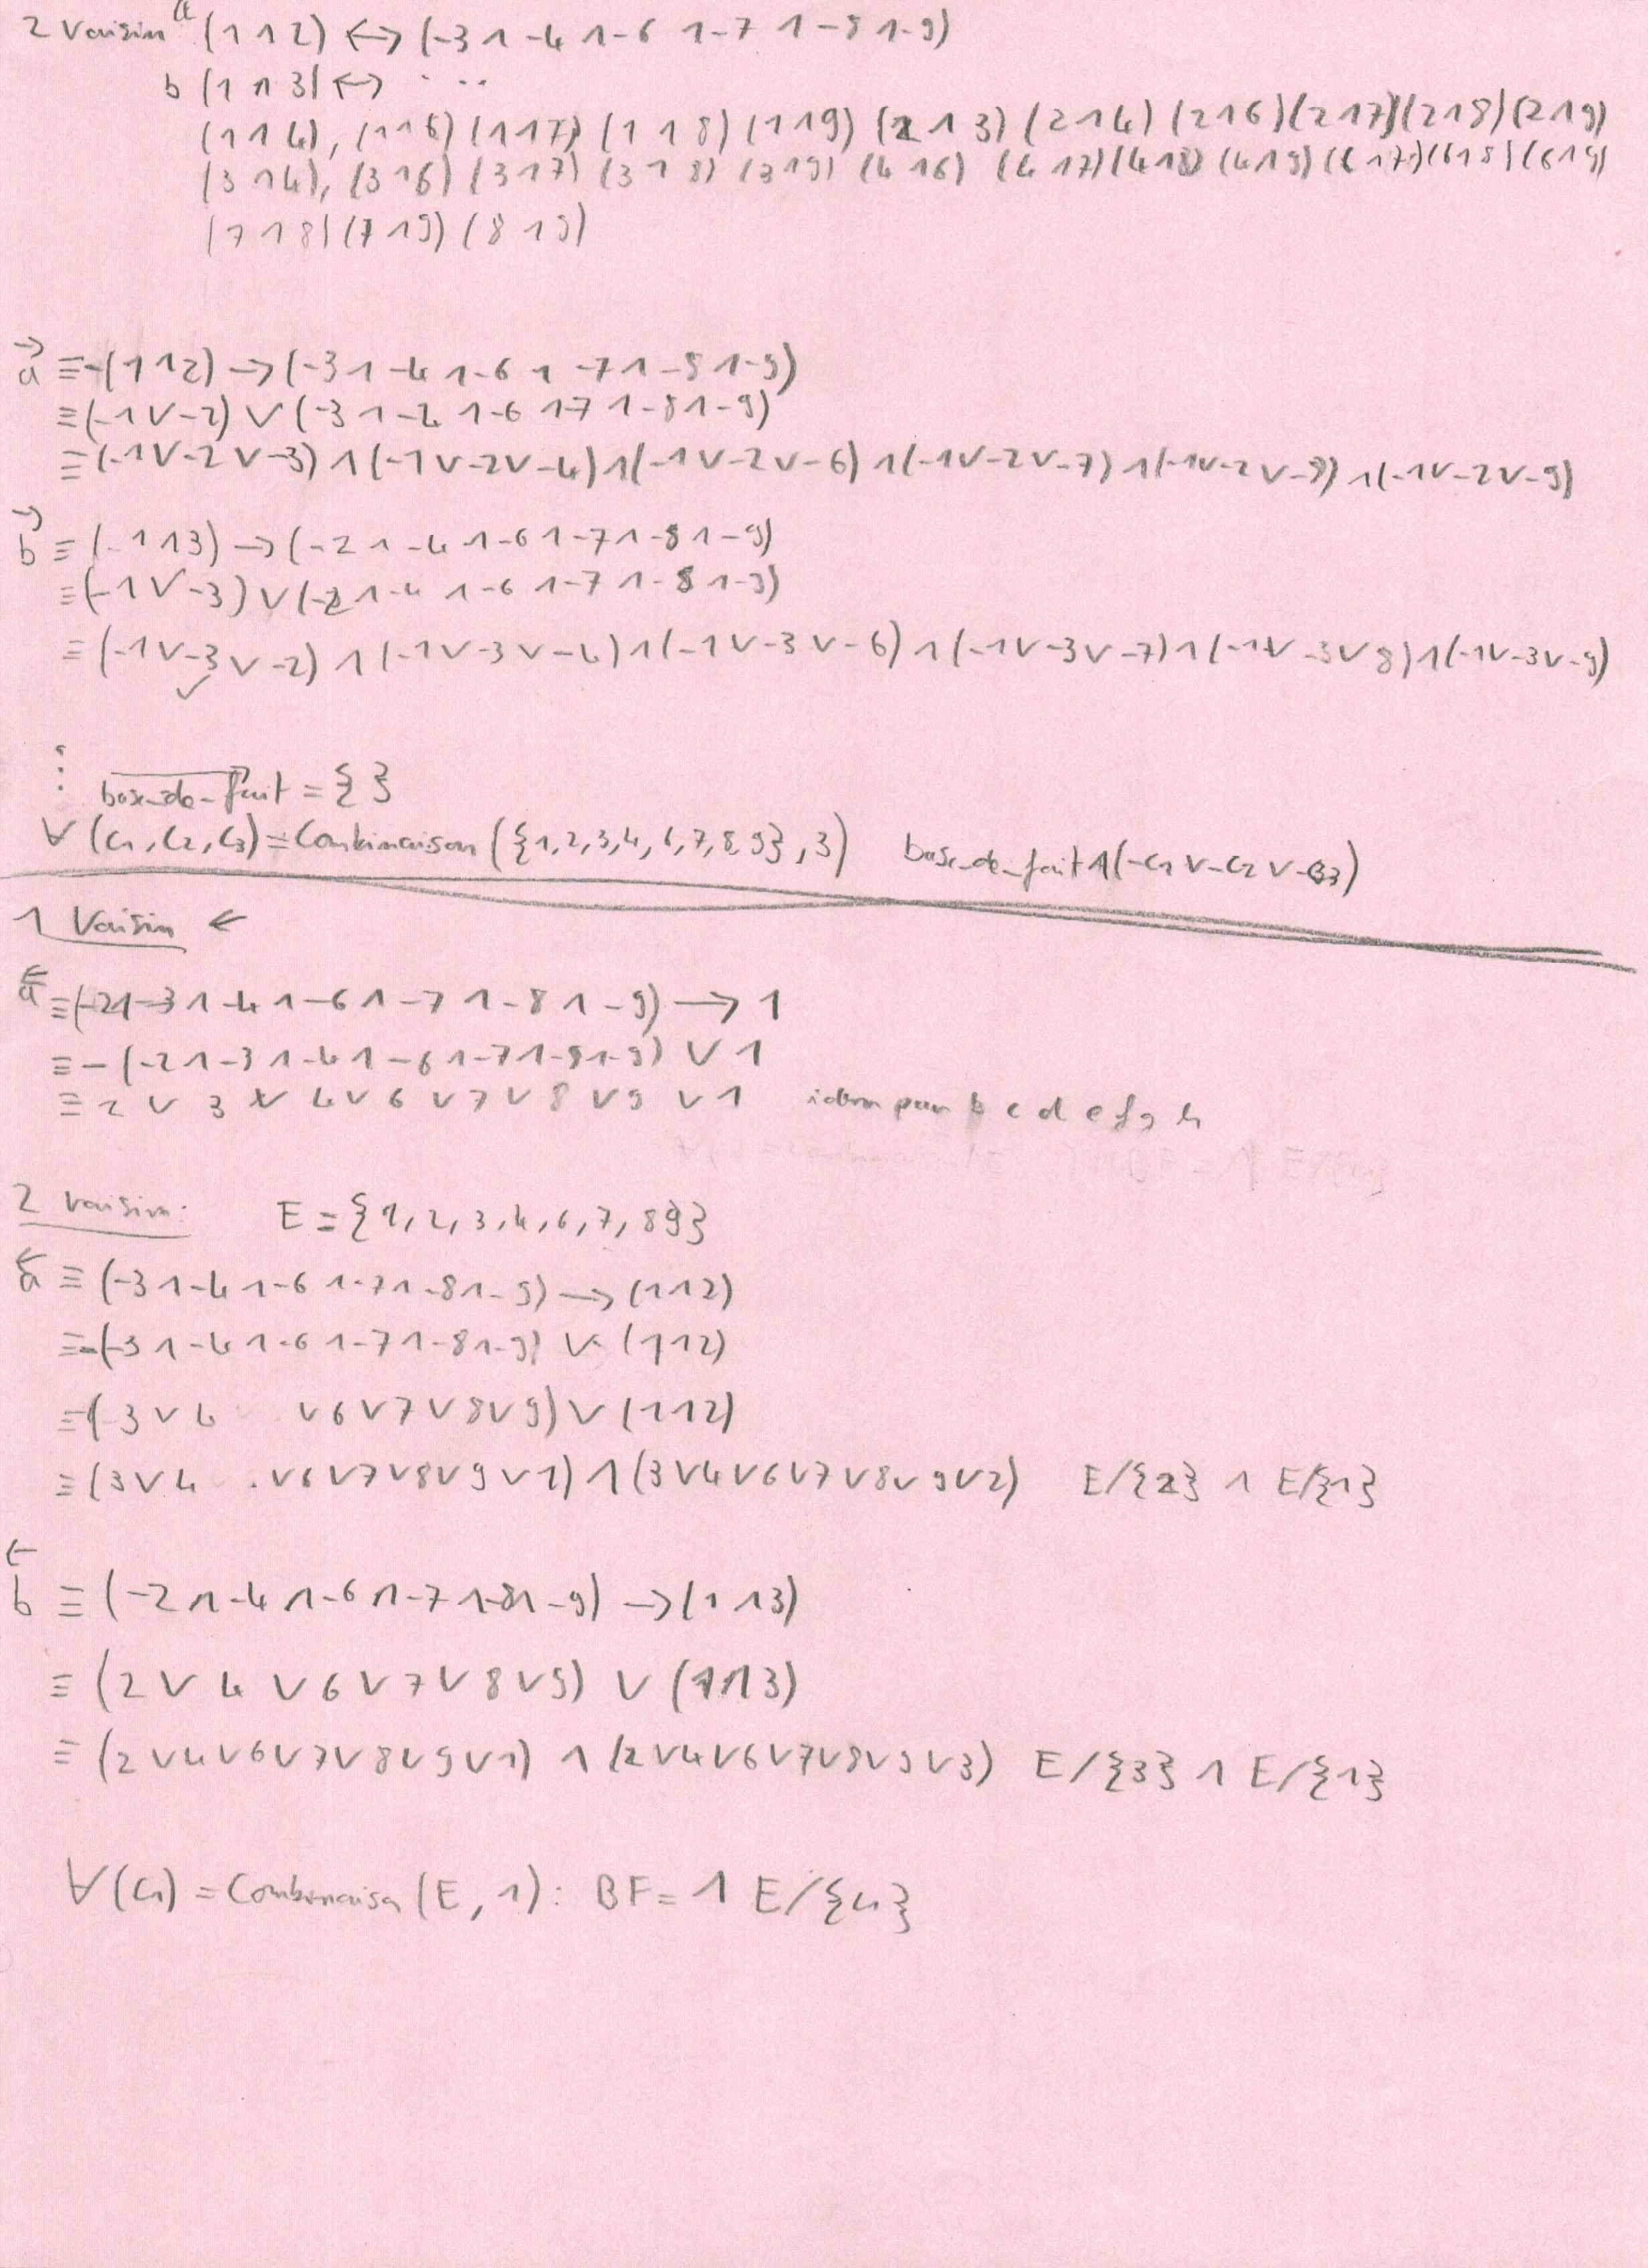 2 Voisin a (1 ∧ 2) ↔ (-3 ∧ -4 ∧ -6 ∧ -7 ∧ -8 ∧ -9)
b (1 ∧ 3) ↔ ...
(1 ∧ 4), (1 ∧ 6) (1 ∧ 7) (1 ∧ 8) (1 ∧ 9) (2 ∧ 3) (2 ∧ 4) (2 ∧ 6) (2 ∧ 7) (2 ∧ 8) (2 ∧ 9)
(3 ∧ 4), (3 ∧ 6) (3 ∧ 7) (3 ∧ 8) (3 ∧ 9) (4 ∧ 6) (4 ∧ 7) (4 ∧ 8) (4 ∧ 9) (6 ∧ 7) (6 ∧ 8) (6 ∧ 9)
(7 ∧ 8) (7 ∧ 9) (8 ∧ 9)
→a ≡ -(1 ∧ 2) → (-3 ∧ -4 ∧ -6 ∧ -7 ∧ -8 ∧ -9)
≡ (-1 ∨ -2) ∨ (-3 ∧ -4 ∧ -6 ∧ -7 ∧ -8 ∧ -9)
≡ (-1 ∨ -2 ∨ -3) ∧ (-1 ∨ -2 ∨ -4) ∧ (-1 ∨ -2 ∨ -6) ∧ (-1 ∨ -2 ∨ -7) ∧ (-1 ∨ -2 ∨ -8) ∧ (-1 ∨ -2 ∨ -9)
→b ≡ (-1 ∧ 3) → (-2 ∧ -4 ∧ -6 ∧ -7 ∧ -8 ∧ -9)
≡ (-1 ∨ -3) ∨ (-2 ∧ -4 ∧ -6 ∧ -7 ∧ -8 ∧ -9)
≡ (-1 ∨ -3 ∨ -2) ∧ (-1 ∨ -3 ∨ -4) ∧ (-1 ∨ -3 ∨ -6) ∧ (-1 ∨ -3 ∨ -7) ∧ (-1 ∨ -3 ∨ 8) ∧ (-1 ∨ -3 ∨ -9)
✓
⋮ base_de_fait = { }
∀ (C1, C2, C3) = Combinaison ({1, 2, 3, 4, 6, 7, 8, 9}, 3) base_de_fait ∧ (-C1 ∨ -C2 ∨ -C3)
1 Voisin ←
←a ≡ (-2 ∧ -3 ∧ -4 ∧ -6 ∧ -7 ∧ -8 ∧ -9) → 1
≡ - (-2 ∧ -3 ∧ -4 ∧ -6 ∧ -7 ∧ -8 ∧ -9) ∨ 1
≡ 2 ∨ 3 ∨ 4 ∨ 6 ∨ 7 ∨ 8 ∨ 9 ∨ 1 idem pour b c d e f g h
2 voisin: E = {1, 2, 3, 4, 6, 7, 8 9}
←a ≡ (-3 ∧ -4 ∧ -6 ∧ -7 ∧ -8 ∧ -9) → (1 ∧ 2)
≡ -(-3 ∧ -4 ∧ -6 ∧ -7 ∧ -8 ∧ -9) ∨ (1 ∧ 2)
≡ (3 ∨ 4 ∨ 6 ∨ 7 ∨ 8 ∨ 9) ∨ (1 ∧ 2)
≡ (3 ∨ 4 ∨ 6 ∨ 7 ∨ 8 ∨ 9 ∨ 1) ∧ (3 ∨ 4 ∨ 6 ∨ 7 ∨ 8 ∨ 9 ∨ 2) E/{2} ∧ E/{1}
←b ≡ (-2 ∧ -4 ∧ -6 ∧ -7 ∧ -8 ∧ -9) → (1 ∧ 3)
≡ (2 ∨ 4 ∨ 6 ∨ 7 ∨ 8 ∨ 9) ∨ (1 ∧ 3)
≡ (2 ∨ 4 ∨ 6 ∨ 7 ∨ 8 ∨ 9 ∨ 1) ∧ (2 ∨ 4 ∨ 6 ∨ 7 ∨ 8 ∨ 9 ∨ 3) E/{3} ∧ E/{1}
∀(C1) = Combinaison (E, 1) : BF = ∧ E/{C1}